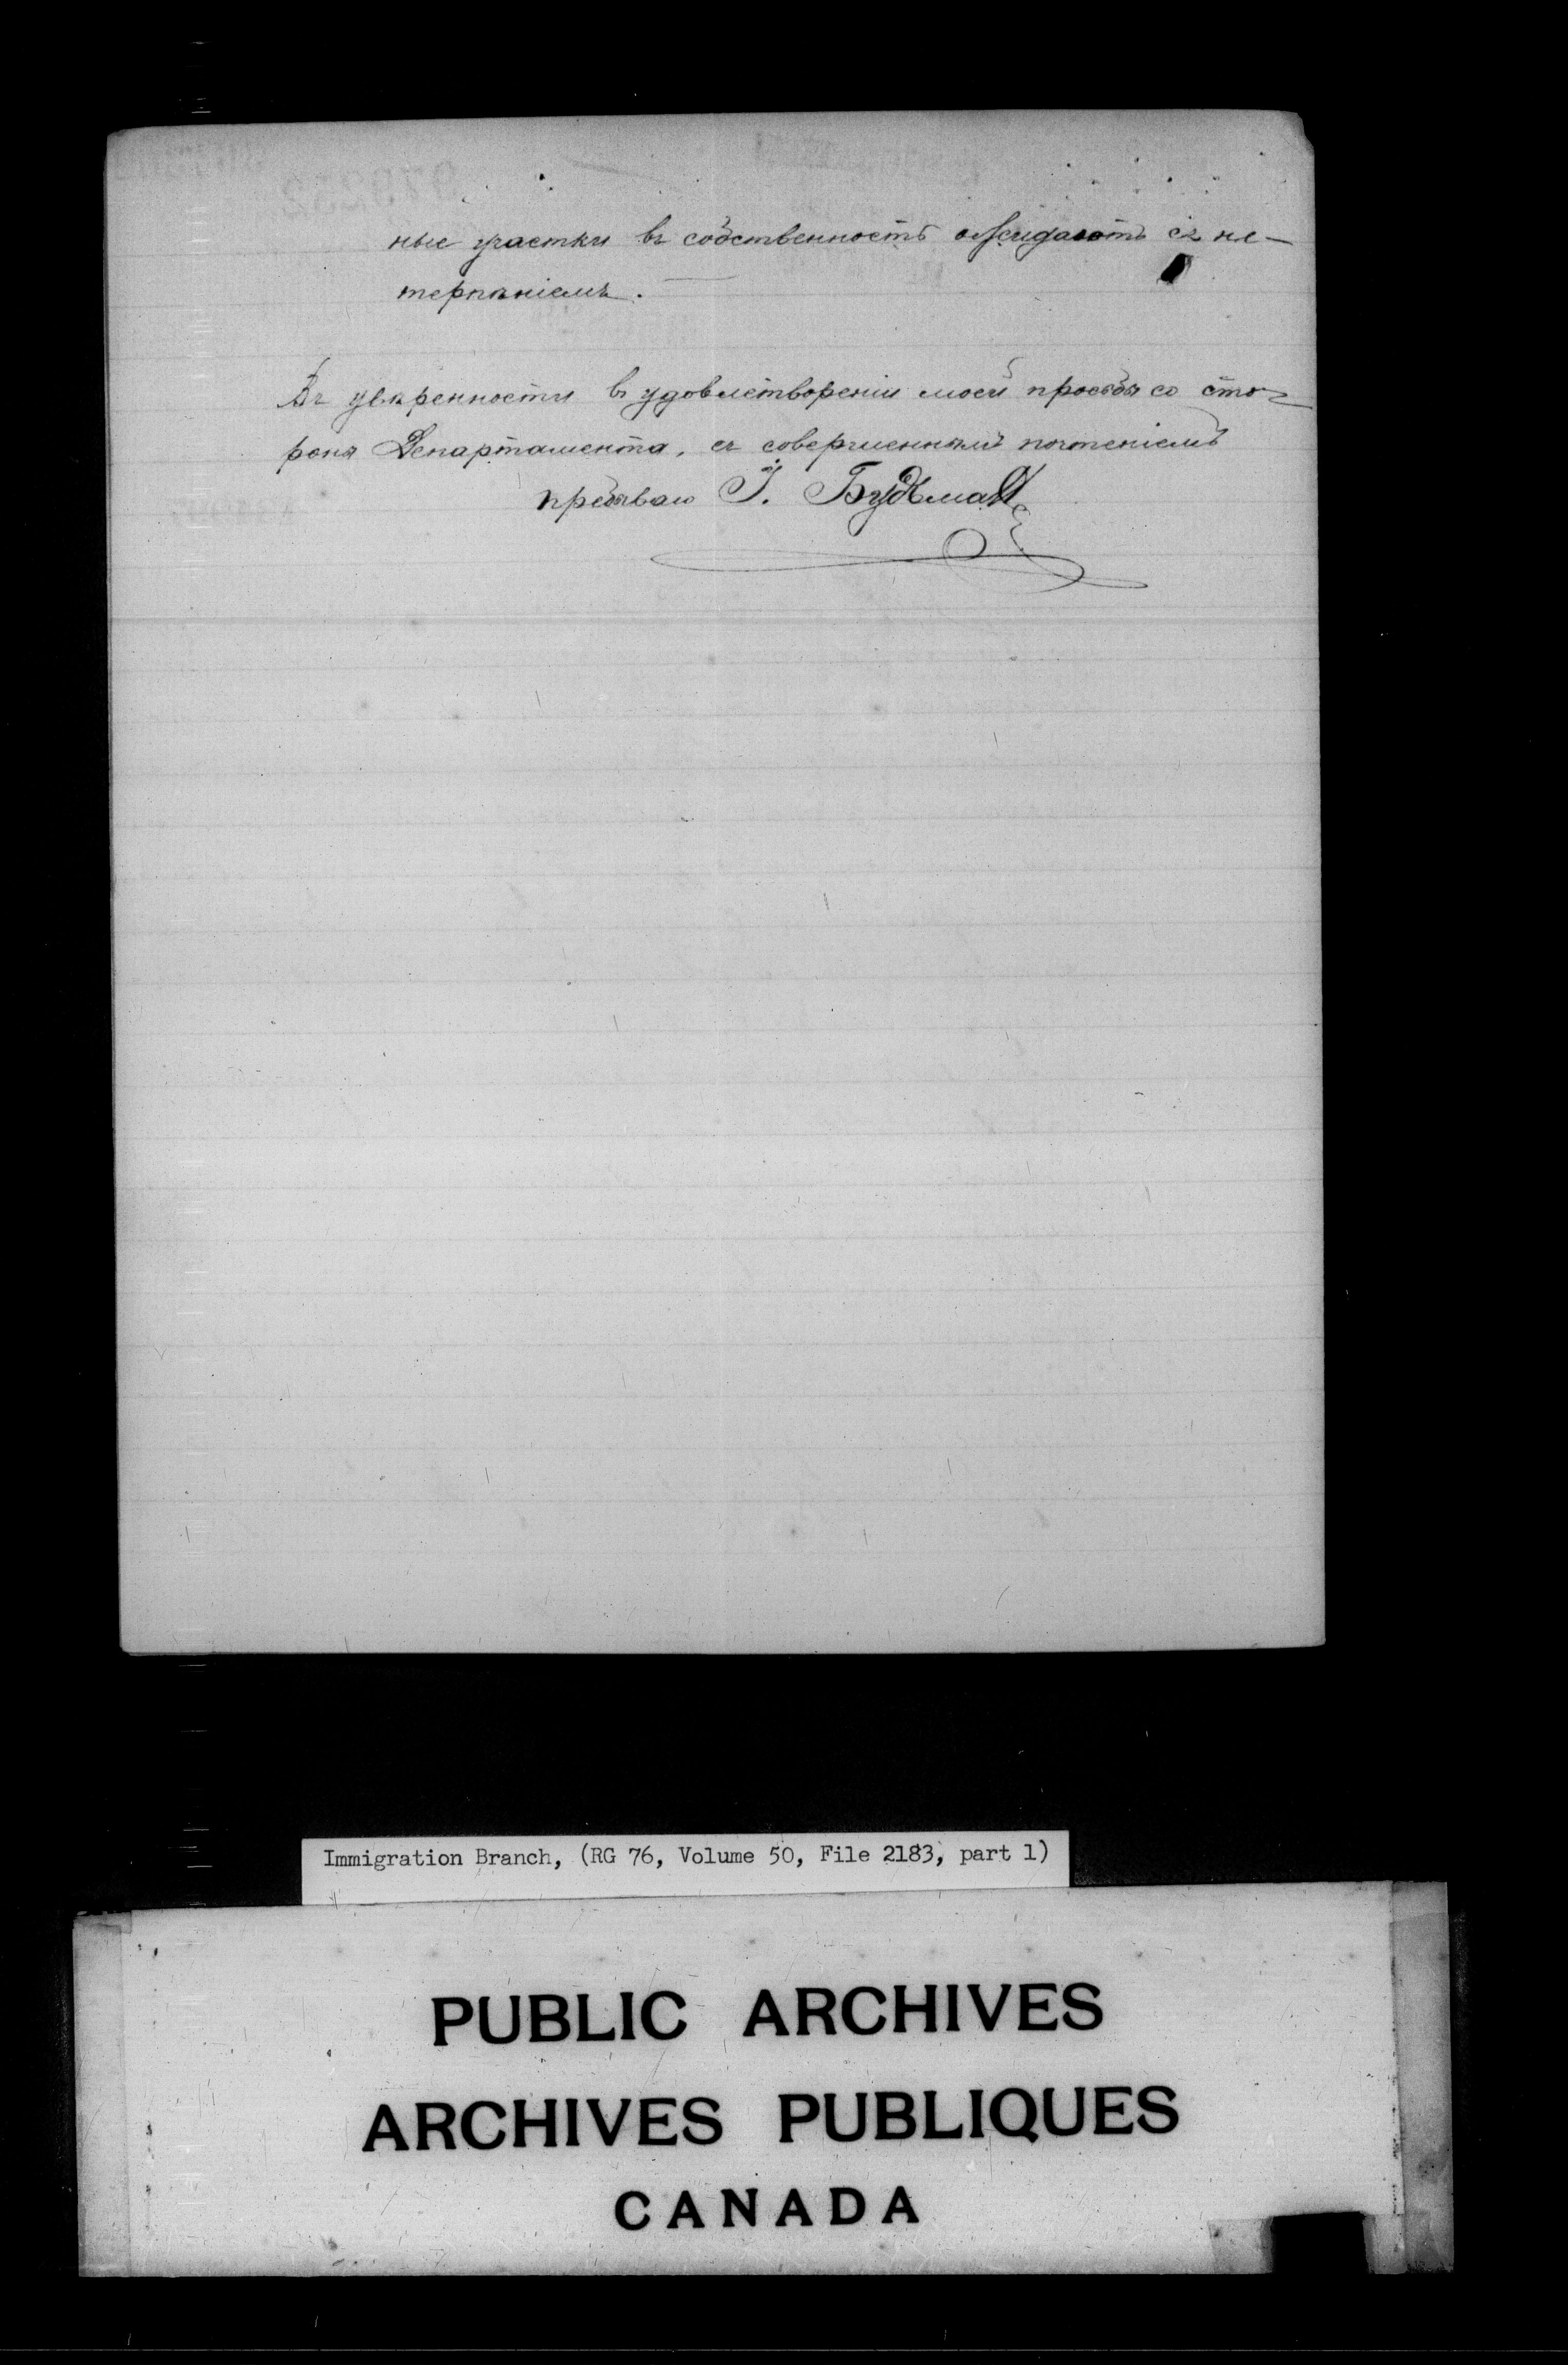 ные участки въ собственность ожидаютъ съ не-
терпѣніемъ.
Въ увѣренности въ удовлетвореніи моей просьбы со сто-
роны Департамента, съ совершеннымъ почтеніемъ
пребываю І.
Immigration Branch, (RG 76, Volume 50, File 2183, part 1)
PUBLIC ARCHIVES
ARCHIVES PUBLIQUES
CANADA